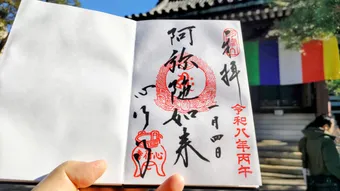 奉拝
令和八年丙午
一月四日
阿弥陀如来
心